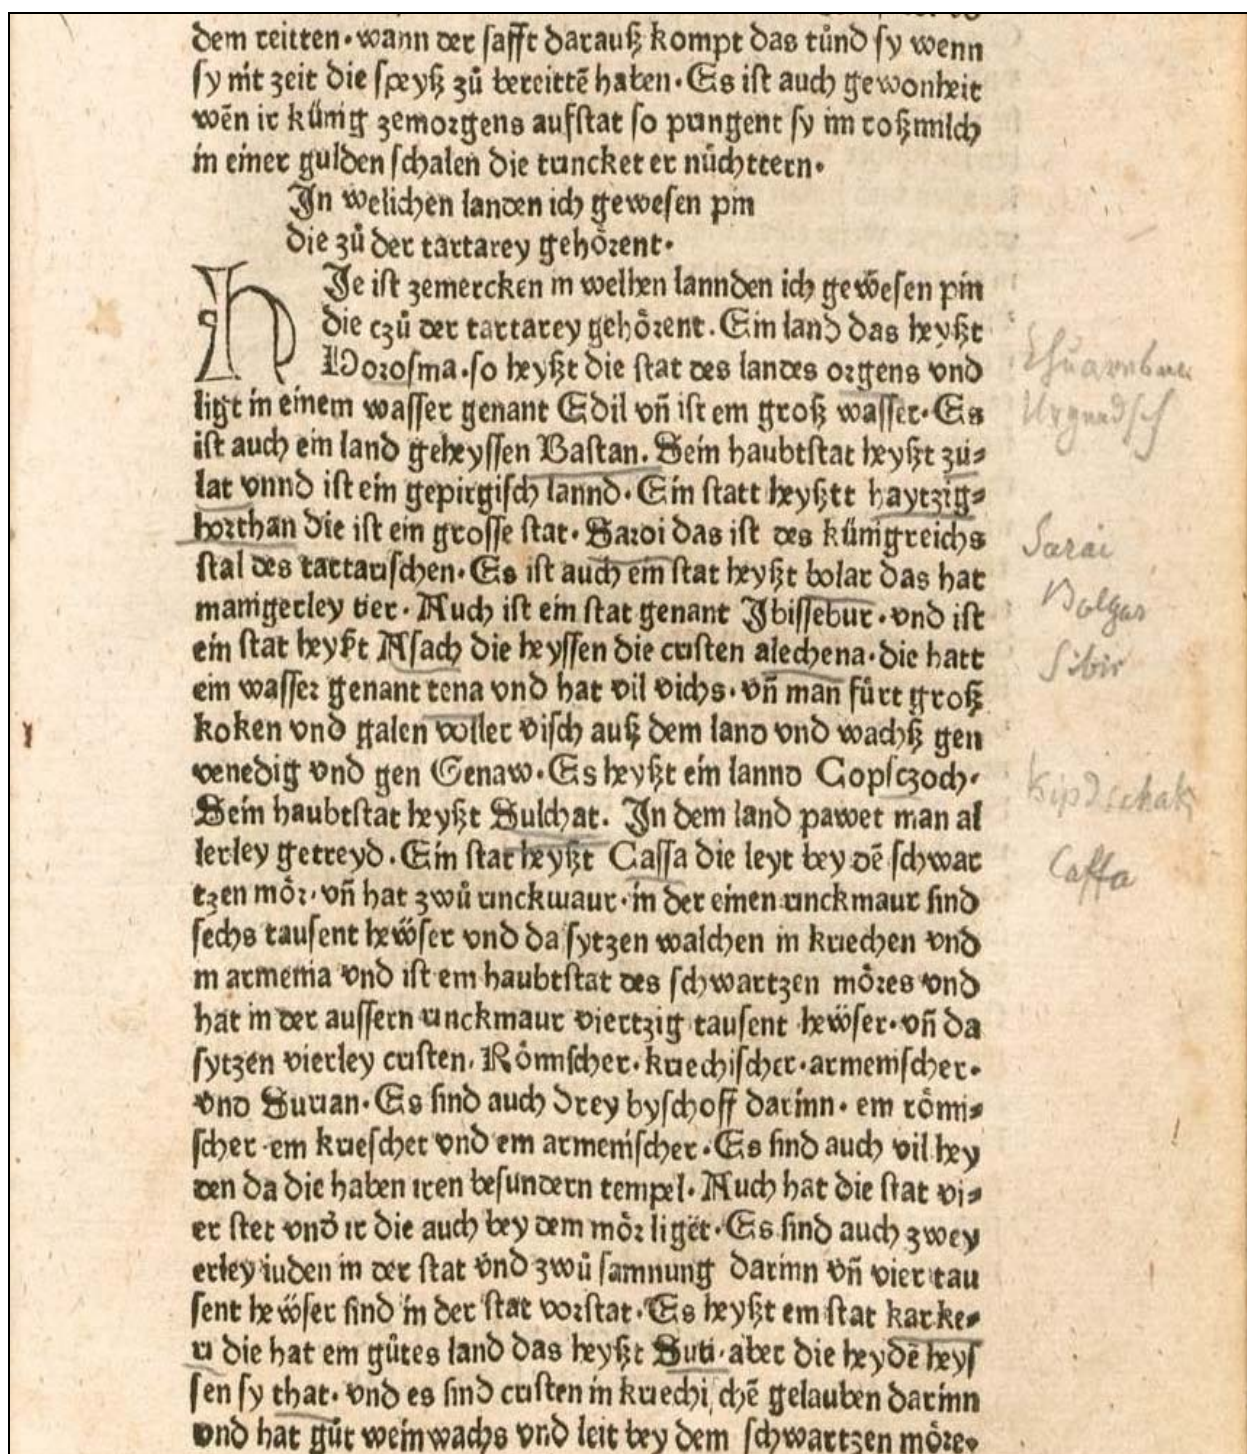 dem reitten·wann der safft darauß kompt das tůnd sy wenn
sy nit zeit die speyß zů bereittē haben·Es ist auch gewonheit
wēn ir künig zemorgens aufstat so pringent sy im roßmilch
in einer gulden schalen die trincket er nüchttern·
In welichen landen ich gewesen pin
die zů der tartarey gehörent·
HJe ist zemercken in welhen lannden ich gewesen pin
die czů der tartarey gehörent. Ein land das heyßt
Horosma·so heyßt die stat des landes orgens vnd
ligt in einem wasser genant Edil vñ ist ein groß wasser·Es
ist auch ein land geheyssen Bastan. Sein haubtstat heyßt zu⸗
lat vnnd ist ein gepirgisch lannd·Ein statt heyßtt haytzig⸗
horthan die ist ein grosse stat·Saroi das ist des künigreichs
stal des tartarischen·Es ist auch ein stat heyßt bolar das hat
manigerley tier·Auch ist ein stat genant Jbissebur·vnd ist
ein stat heyßt Asach die heyssen die cristen alechena·die hatt
ein wasser genant tena vnd hat vil vichs·vñ man fürt groß
koken vnd galen voller visch auß dem land vnd wachß gen
venedig vnd gen Genaw·Es heyßt ein lannd Gopsczoch·
Sein haubtstat heyßt Sulchat. In dem land pawet man al
lerley getreyd. Ein stat heyßt Caffa die leyt bey dē schwar
tzen mör·vñ hat zwů rinckmaur·in der einen rinckmaur sind
sechs tausent hewser vnd da sytzen walchen in kriechen vnd
in armenia vnd ist ein haubtstat des schwartzen möres vnd
hat in der aussern rinckmaur viertzig tausent hewser·vñ da
sytzen vierley cristen·Römischer·kriechischer·armenischer·
vnd Surian·Es sind auch drey byschoff darinn·ein römi⸗
scher·ein kriescher vnd ein armenischer·Es sind auch vil hey
den da die haben iren besundern tempel·Auch hat die stat vi⸗
er stet vnd̄ ir die auch bey dem mör ligēt·Es sind auch zwey
erley iuden in der stat vnd zwů samnung darinn vñ vier tau
sent hewser sind in der stat vorstat·Es heyßt ein stat karke⸗
ri die hat ein gůtes land das heyßt Suti·aber die heydē heys
sen sy that·vnd es sind cristen in kriechi chē gelauben darinn
vnd hat gůt weinwachs vnd leit bey dem schwartzen möre·
Urgendsch
Sarai
Bolgar
Sibir
Kipdschak
Caffa